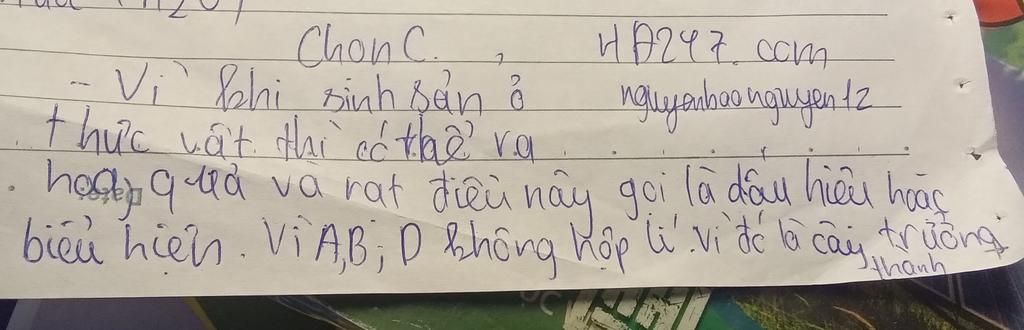 Chọn C. , HD247.com
- Vì khi sinh sản ở nguyenhaonguyen12
thực vật. thì có thể ra
hoa, quả và rat điều này gọi là dấu hiệu hoặc
biểu hiện. Vì A,B; D không hợp lí. vì đó là cây trưởng
thành